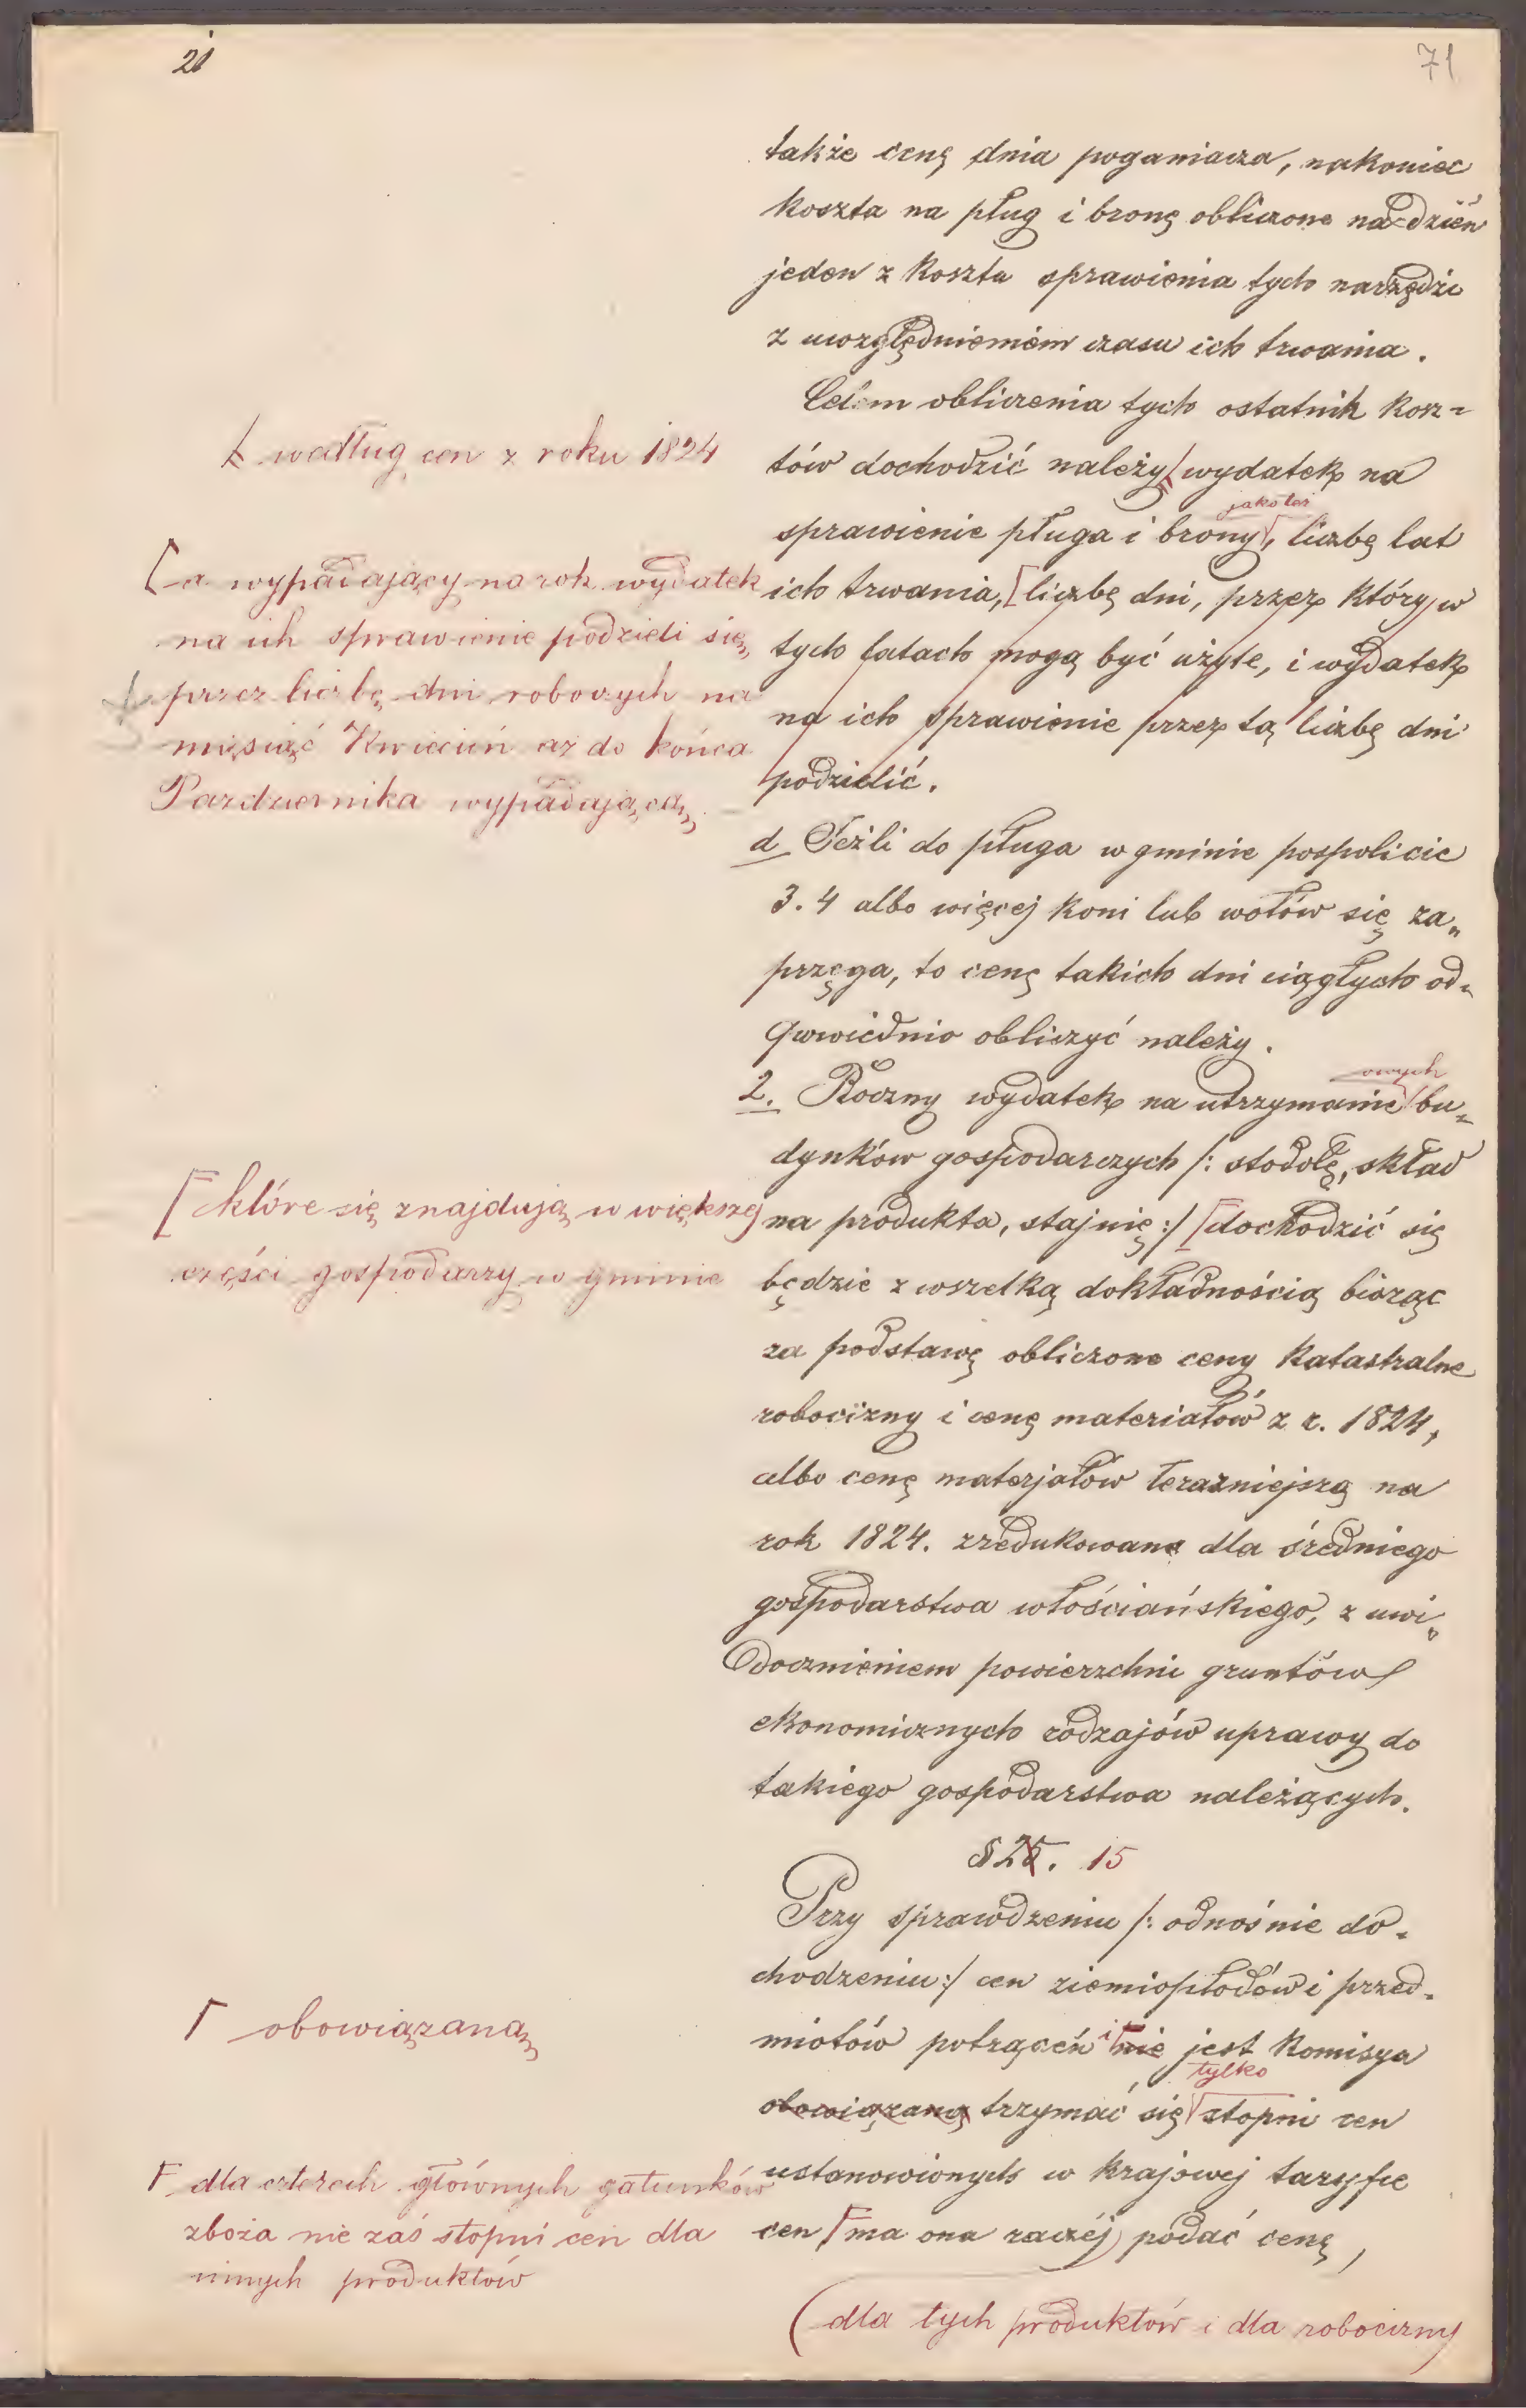 21
71
także cenę dnia poganiacza, nakoniec
koszta na pług i bronę obliczone na dzień
jeden z kosztu sprawienia tych narzędzi
z uwzględnieniem czasu ich trwania.
Celem obliczenia tych ostatnich kosz=
tów dochodzić należy wydatek na
według cen z roku 1824
jakoteż
sprawienie pługa i brony, liczbę lat
ich trwania, liczbę dni, przez który w
tych latach mogą być użyte, i wydatek
na ich sprawienie przez tą liczbę dni
podzielić.
a wypadający na rok wydatek
na ich sprawienie podzieli się
przez liczbę dni roboczych na
miesiąć Kwiecień aż do końca
Pazdziernika wypadającą
d Jeżli do pługa w gminie pospolicie
3. 4 albo więcej koni lub wołów się za„
przęga, to cenę takich dni ciągłych od„
powiednio obliczyć należy.
owych
2. Roczny wydatek na utrzymanie bu„
dynków gospodarczych /: stodołę, skład
na produkta, stajnię :/ dochodzić się
które się znajdują w większej
części gospodarzy w gminie
będzie z wszelką dokładnością biorąc
za podstawę obliczone ceny katastralne
robocizny i cenę materiałów z r. 1824,
albo cenę materjałów terazniejszą na
rok 1824. zredukowane dla średniego
gospodarstwa włościańskiego, z uwi„
docznieniem powierzchni gruntów
ekonomicznych rodzajów uprawy do
takiego gospodarstwa należących.
§ 25. 15
Przy sprawdzeniu /: odnośnie do„
chodzeniu :/ cen ziemiopłodów i przed„
miotów potrąceń i nie jest Komisya
obowiązaną
tylko
obowiązaną trzymać się stopni cen
ustanowionych w krajowej taryfie
cen ma ona raczéj podać cenę,
dla czterech głównych gatunków
zboża nie zaś stopni cen dla
innych produktów
(dla tych produktów i dla robocizny